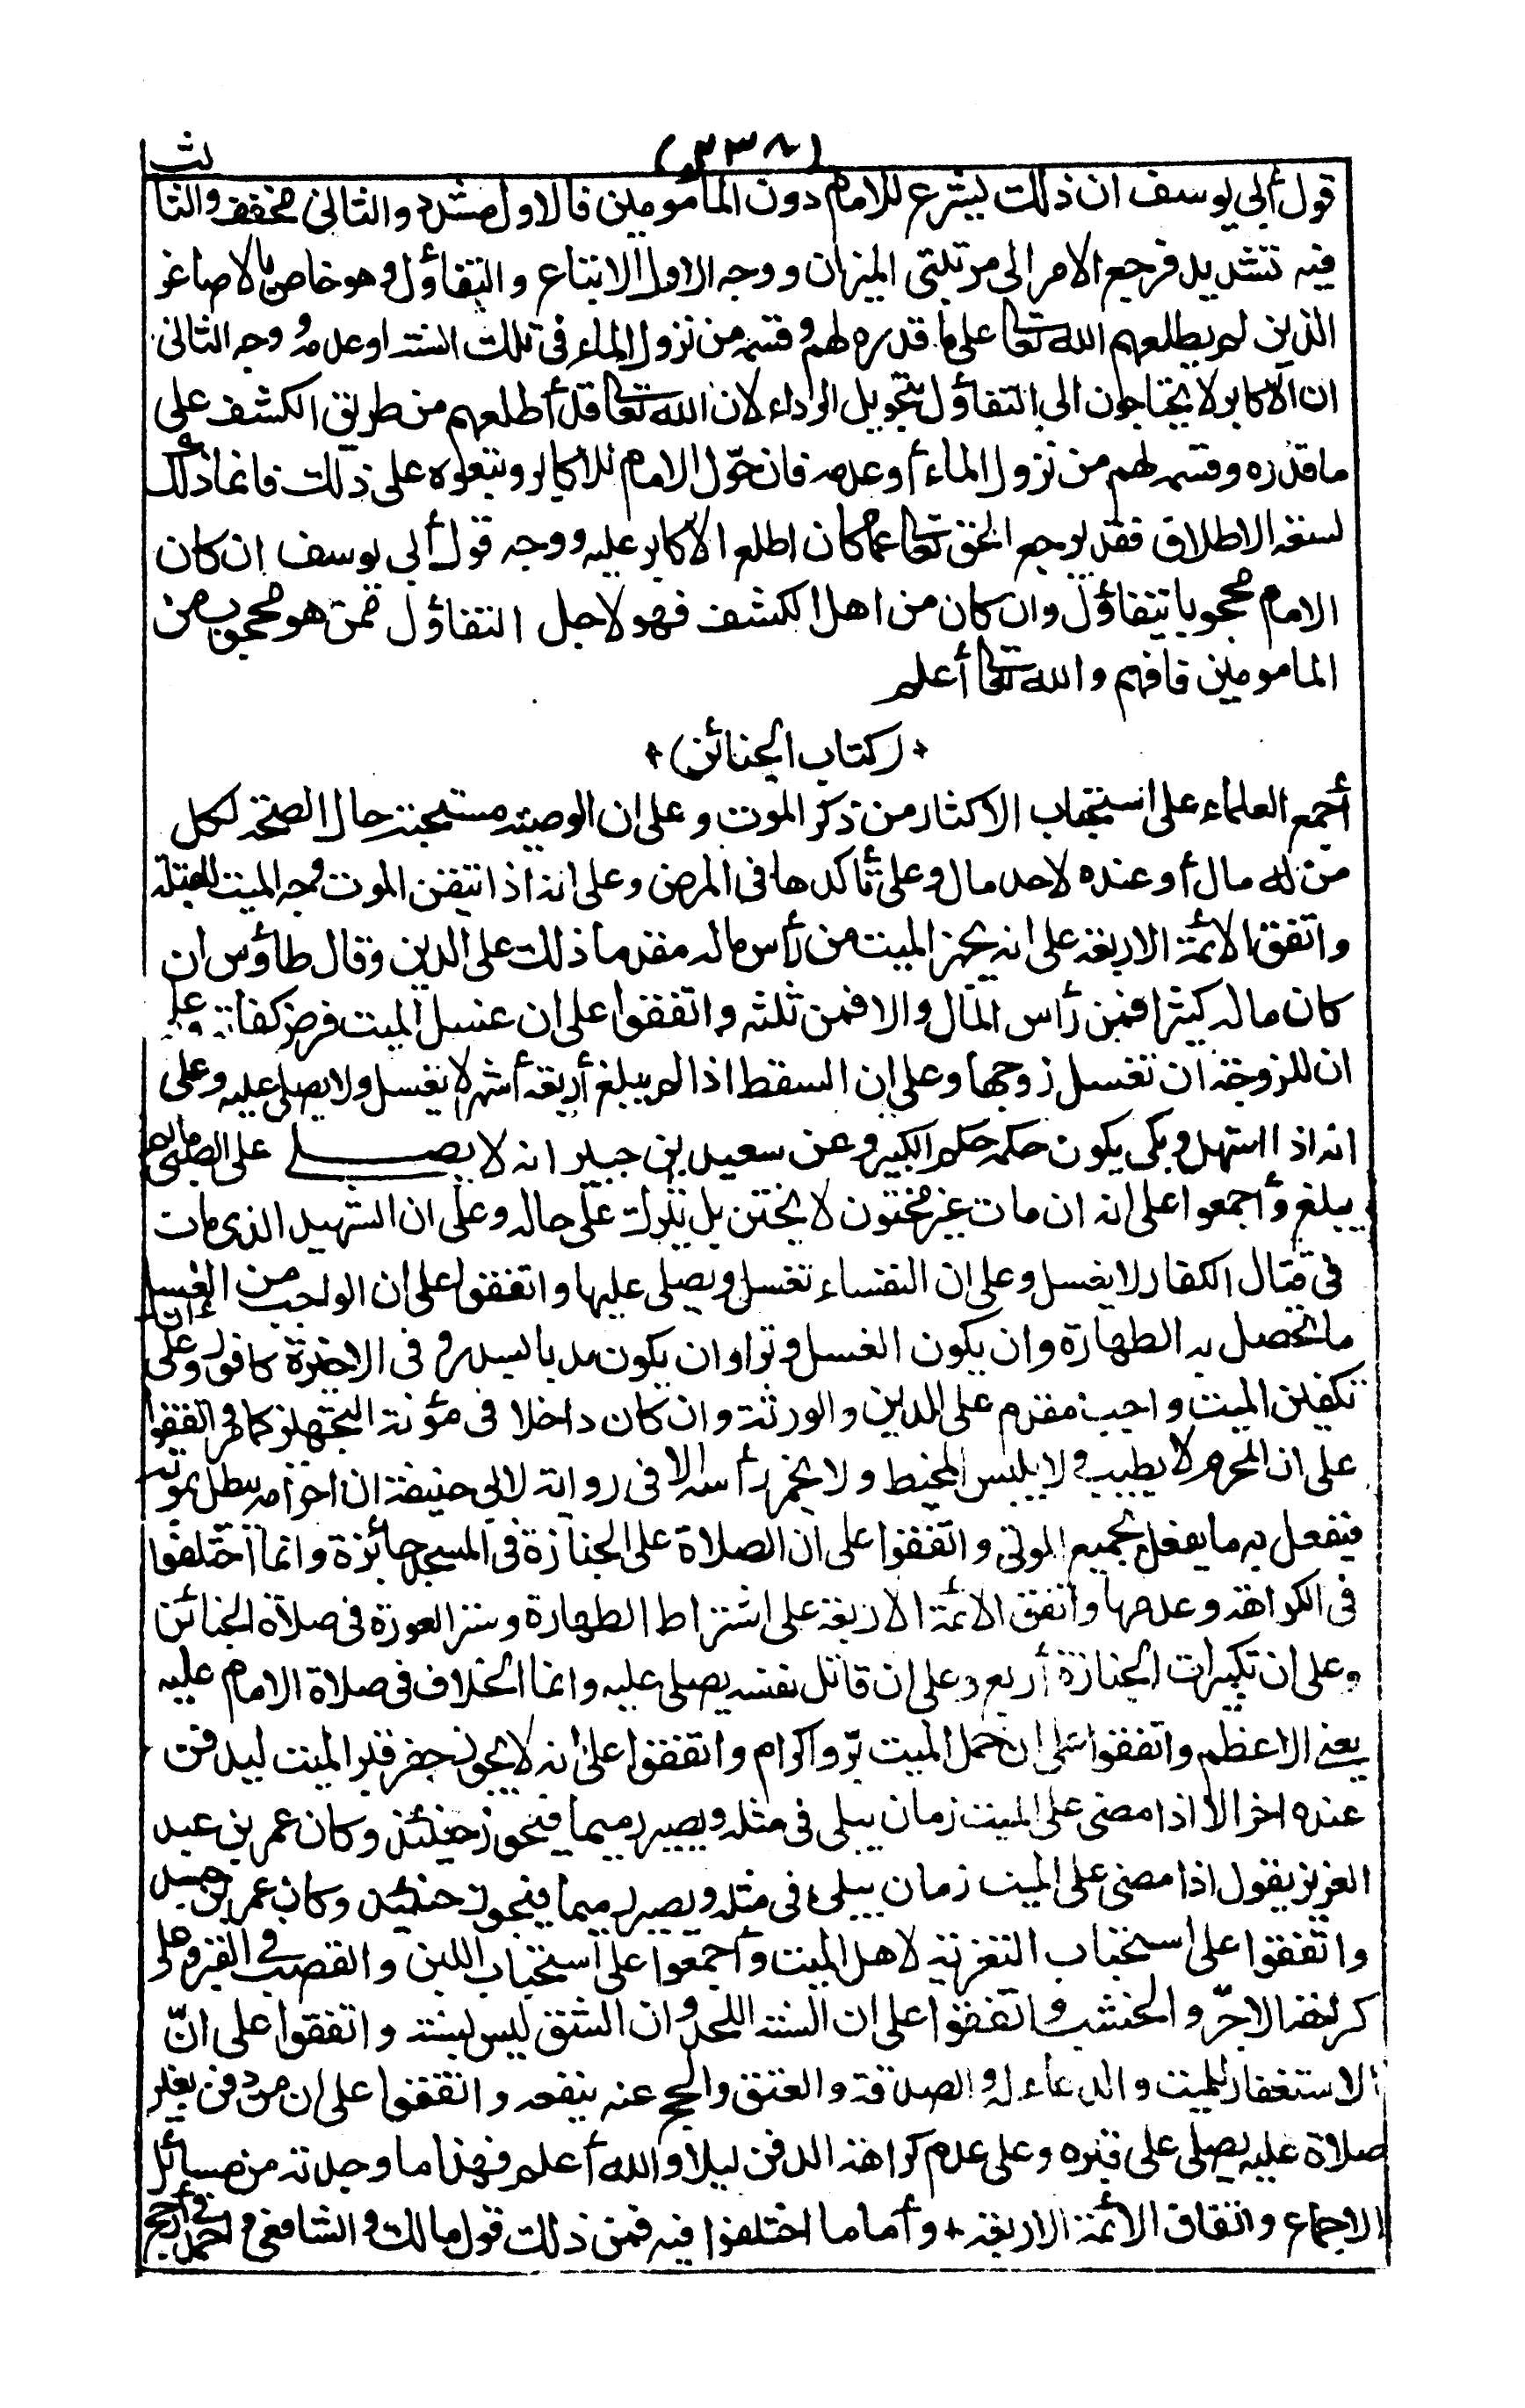 (٢٣٨)
ث
قول أبي يوسف ان ذلك يشرع للامام دون المأمومين فالاول مشدد والثاني مخفف والثا
فيه تشديد فرجع الامر الى مرتبتي الميزان ووجه الاول الاتباع والتفاؤل وهو خاص بالاصاغر
الذين لم يطلعهم الله تعالى على ما قدره لهم وقسمه من نزول الماء في تلك السنة او عدمه ووجه الثاني
ان الأكابر لا يحتاجون الى التفاؤل بتحويل الرداء لان الله تعالى قد أطلعهم من طريق الكشف على
ما قدره وقسمه لهم من نزول الماء أو عدمه فان حوّل الامام للاكابر وتبعوه على ذلك فانما ذلك
لسعة الاطلاق فقد يرجع الحق تعالى عما كان اطلع الأكابر عليه ووجه قول أبي يوسف ان كان
الامام محجوبا يتفاؤل وان كان من اهل الكشف فهو لاجل التفاؤل ممن هو محجوب من
المامومين فافهم والله تعالى أعلم
* (كتاب الجنائز) *
أجمع العلماء على استحباب الاكثار من ذكر الموت وعلى ان الوصية مستحبة حال الصحة لكل
من له مال أو عنده لاحد مال وعلى تأكدها في المرض وعلى انه اذا تيقن الموت وجه الميت للقبلة
واتفق الائمة الاربعة على انه يجهز الميت من رأس ماله مقدما ذلك على الدين وقال طاؤس ان
كان ماله كثيرا فمن رأس المال والا فمن ثلثه واتفقوا على ان غسل الميت فرض كفاية وعلى
ان للزوجة ان تغسل زوجها وعلى ان السقط اذا لم يبلغ أربعة أشهر لا يغسل ولا يصلى عليه وعلى
انه اذا استهل وبكى يكون حكمه حكم الكبير وعن سعيد بن جبير انه لا يصلى على الصبي ما لم
يبلغ وأجمعوا على انه ان مات غير مختون لا يختن بل يترك على حاله وعلى ان الشهيد الذي مات
في قتال الكفار لا يغسل وعلى ان النفساء تغسل ويصلى عليها واتفقوا على ان الواجب من الغسل
ما تحصل به الطهارة وان يكون الغسل وترا وان يكون بالسدر وفي الاخيرة كافور وعلى ان
تكفين الميت واجب مقدم على الدين والورثة وان كان داخلا في مؤنة التجهيز كما مر واتفقوا
على ان المحرم لا يطيب ولا يلبس المخيط ولا يخمر رأسه الا في رواية لابي حنيفة ان احرامه يبطل بموته
فيفعل به ما يفعل بجميع الموتى واتفقوا على ان الصلاة على الجنازة في المسجد جائزة وانما اختلفوا
في الكراهة وعدمها واتفق الائمة الاربعة على اشتراط الطهارة وستر العورة في صلاة الجنائز
وعلى ان تكبيرات الجنازة أربع وعلى ان قاتل نفسه يصلى عليه وانما الخلاف في صلاة الامام عليه
يعني الاعظم واتفقوا على ان حمل الميت برّ واكرام واتفقوا على انه لا يجوز حفر قبر الميت ليدفن
عنده اخر الا اذا مضى على الميت زمان يبلى في مثله ويصير رميما فيجوز حينئذ وكان عمر بن عبد
العزيز يقول اذا مضى على الميت زمان يبلى في مثله ويصير رميما فيجوز حينئذ وكان عمر بن
واتفقوا على استحباب التعزية لاهل الميت وأجمعوا على استحباب اللبن والقصب في القبر وعلى
كراهة الاجرّ والخشب واتفقوا على ان السنة اللحد وان الشق ليس بسنة واتفقوا على انّ
الاستغفار للميت والدعاء له والصدقة والعتق والحج عنه ينفعه واتفقوا على ان من دفن بغير
صلاة عليه يصلى على قبره وعلى عدم كراهة الدفن ليلا والله أعلم فهذا ما وجدته من مسائل
الاجماع واتفاق الائمة الاربعة * وأما ما اختلفوا فيه فمن ذلك قول مالك والشافعي و احمد في أرجح